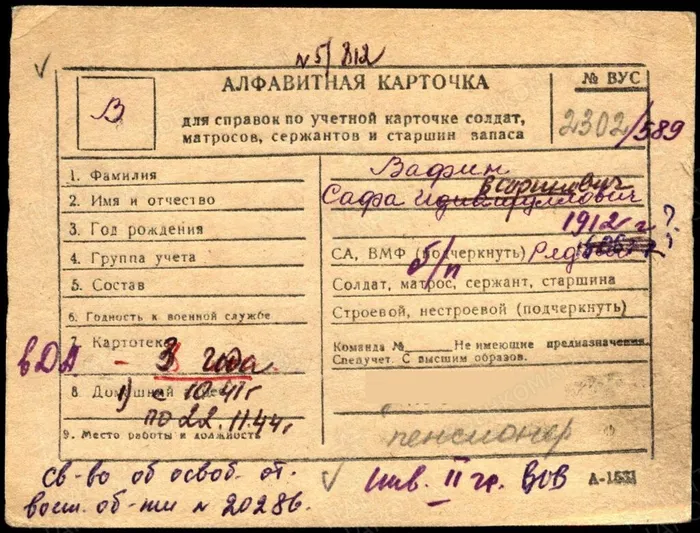 №5/812
АЛФАВИТНАЯ КАРТОЧКА
№ ВУС
В
для справок по учетной карточке солдат,
матросов, сержантов и старшин запаса
2302/589
1. Фамилия
Вафин
2. Имя и отчество
Сафа
3. Год рождения
1912 г. ?
4. Группа учета
СА, ВМФ (подчеркнуть) Рядовой
б/п
5. Состав
Солдат, матрос, сержант, старшина
6. Годность к военной службе
Строевой, нестроевой (подчеркнуть)
7. Картотека
вДА - 3 года
Команда № Не имеющие предназначения
Спецучет. С высшим образов.
8. Домашний адрес
1) с 10.41г
по 22.11.44г
9. Место работы и должность
пенсионер
св-во об освоб. от.
воин. об-ти № 20286.
инв. II гр. ВОВ
А-1531